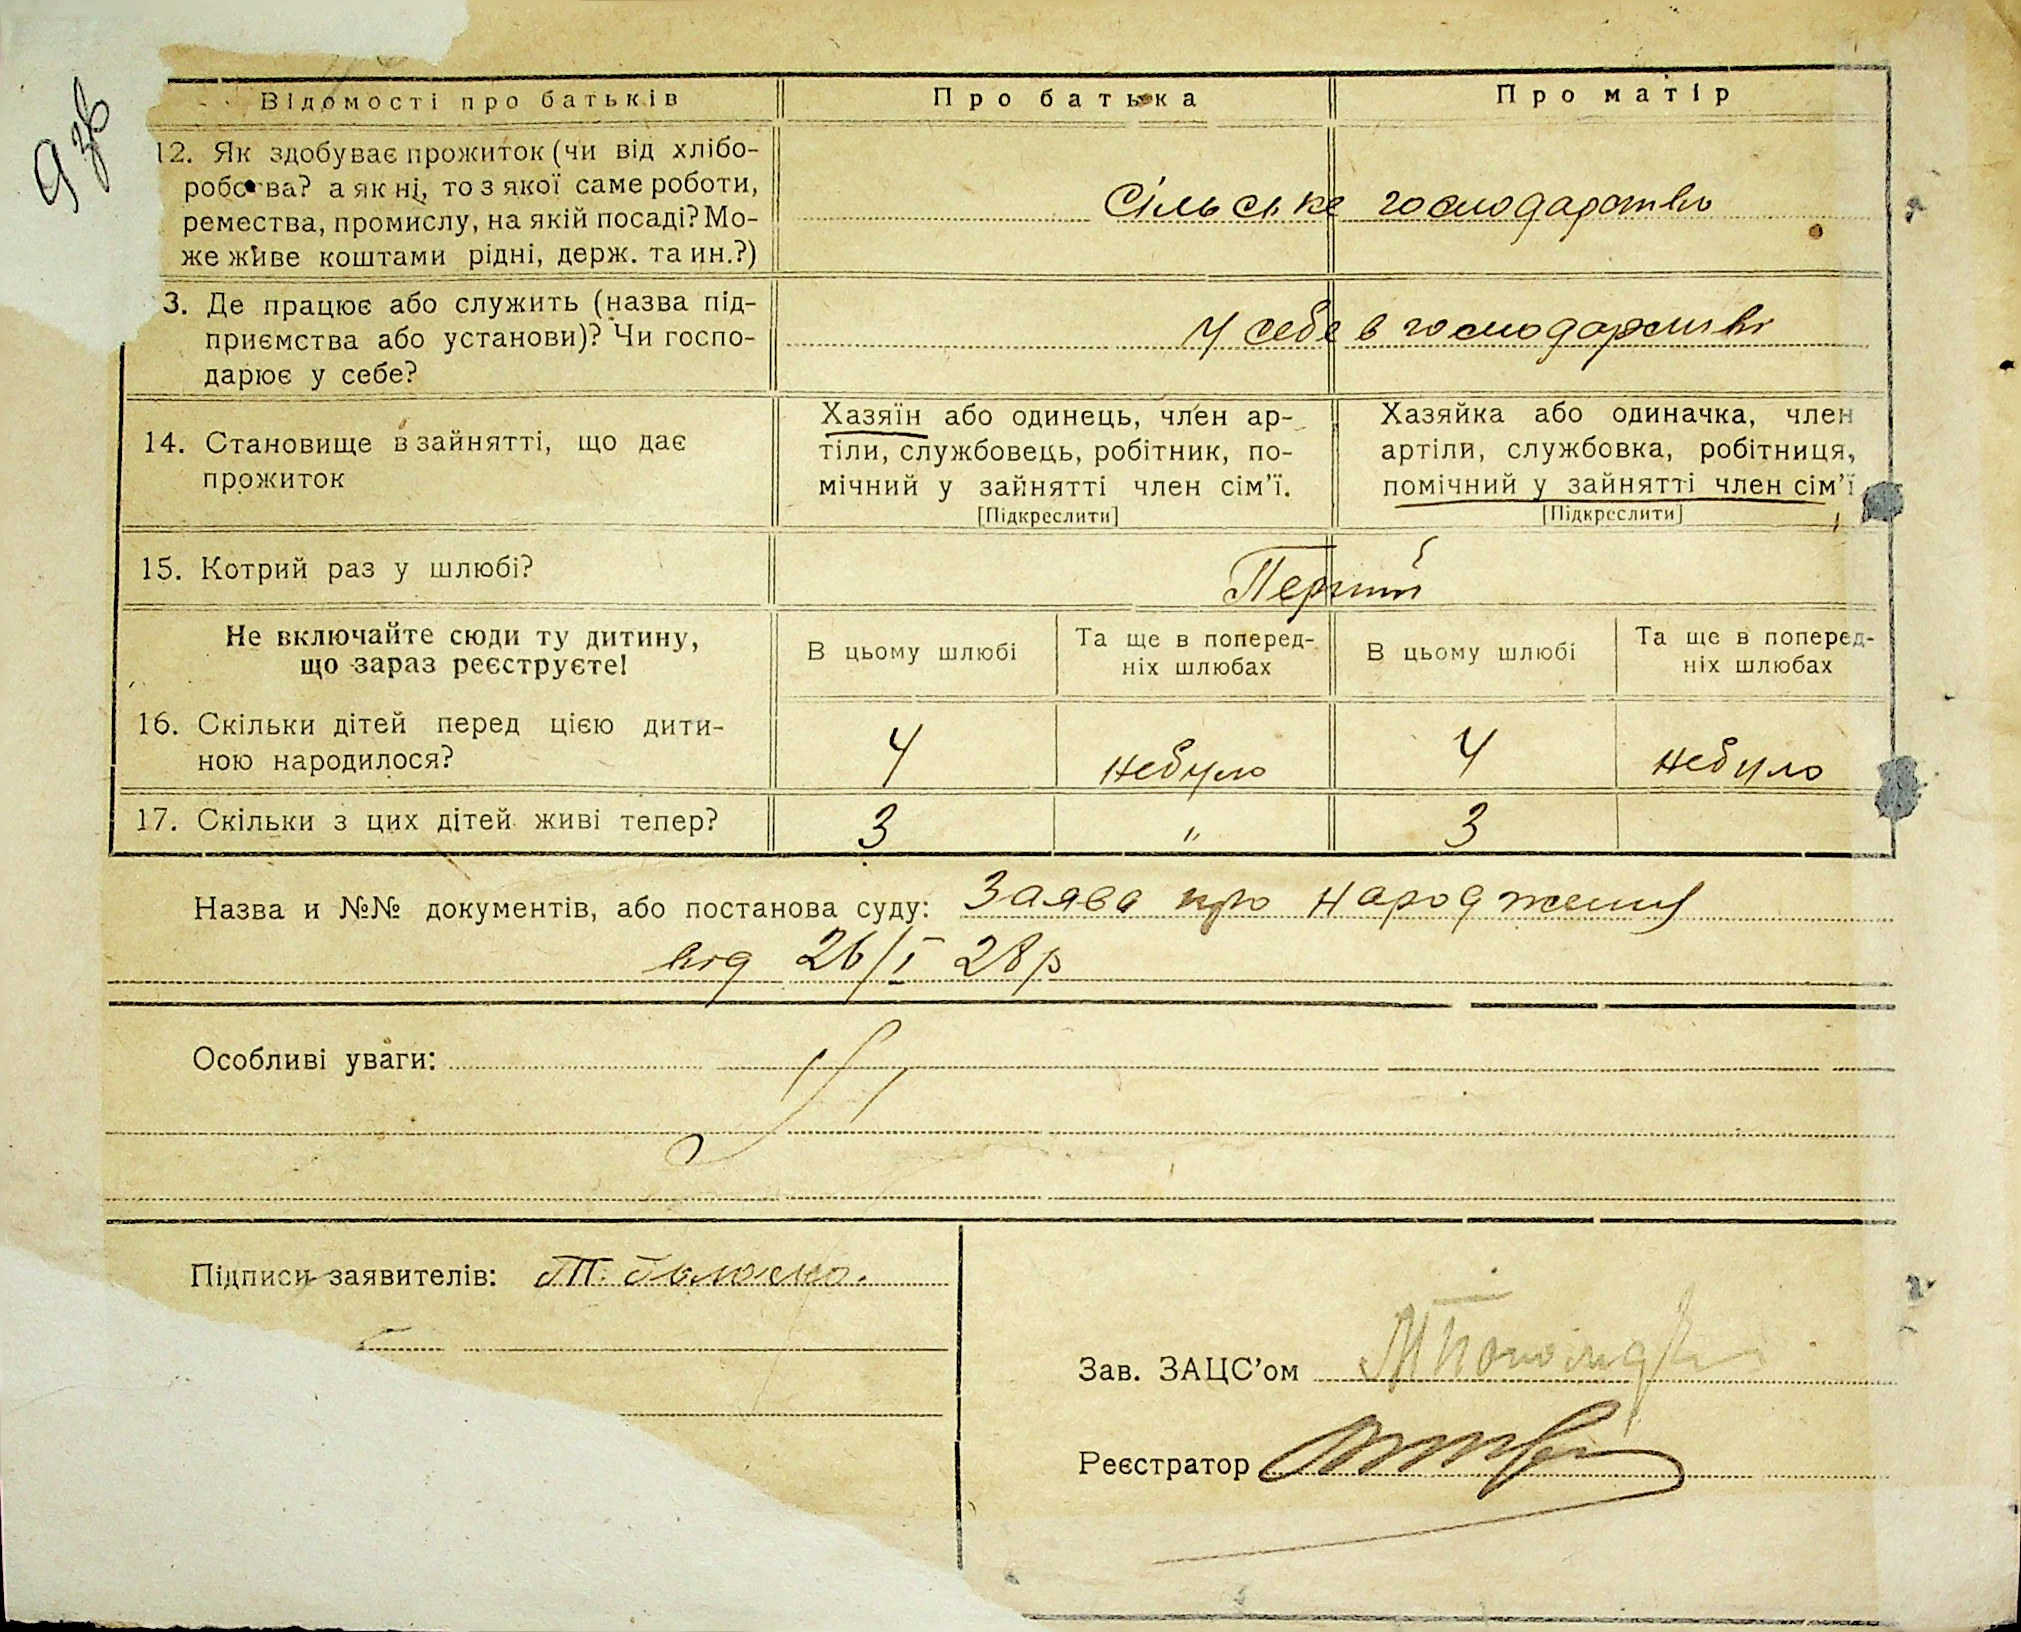 9 зв
Відомості про батьків
Про батька
Про матір
12. Як здобуває прожиток (чи від хлібо-
робства? а як ні, то з якої саме роботи,
ремества, промислу, на якій посаді? Мо-
же живе коштами рідні, держ. та ин.?)
Сільське господарство
3. Де працює або служить (назва під-
приємства або установи)? Чи госпо-
дарює у себе?
у себе в господарстві
14. Становище в зайнятті, що дає
прожиток
Хазяїн або одинець, член ар-
тіли, службовець, робітник, по-
мічний у зайнятті член сім’ї.
[Підкреслити]
Хазяйка або одиначка, член
артіли, службовка, робітниця,
помічний у зайнятті член сім’ї
[Підкреслити]
15. Котрий раз у шлюбі?
Перший
Не включайте сюди ту дитину,
що зараз реєструєте!
В цьому шлюбі
Та ще в поперед-
ніх шлюбах
В цьому шлюбі
Та ще в поперед-
ніх шлюбах
16. Скільки дітей перед цією дити-
ною народилося?
4 небуло 4 небуло
17. Скільки з цих дітей живі тепер?
3 " 3
Назва и №№ документів, або постанова суду: Заява про народження
від 26/I 28р
Особливі уваги:
Підписи заявителів:
Зав. ЗАЦС’ом
Реєстратор